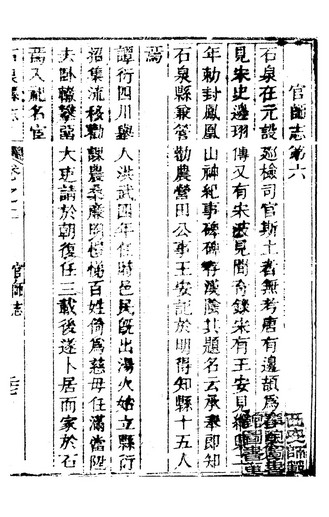 官師志第六
石泉在元設廵檢司官斯土者無考唐有邊頡爲
見宋史邊珝傳又有朱 見聞奇錄宋有王安見 三
年勅封鳳凰山神紀事碑碑存漢陰其題名云承奉郎知
石泉縣兼管勸農營田公事王安記於明得知縣十五人
焉
譚衍四川舉人洪武四年任時邑民旣出湯火始立縣衍
招集流移勸課農桑廉明 悌百姓倚爲慈母任滿當陞
去臥轅攀 大吏請於朝復任三載後遂卜居而家於石
焉入祀名宦
石泉縣志
卷之二
官師志